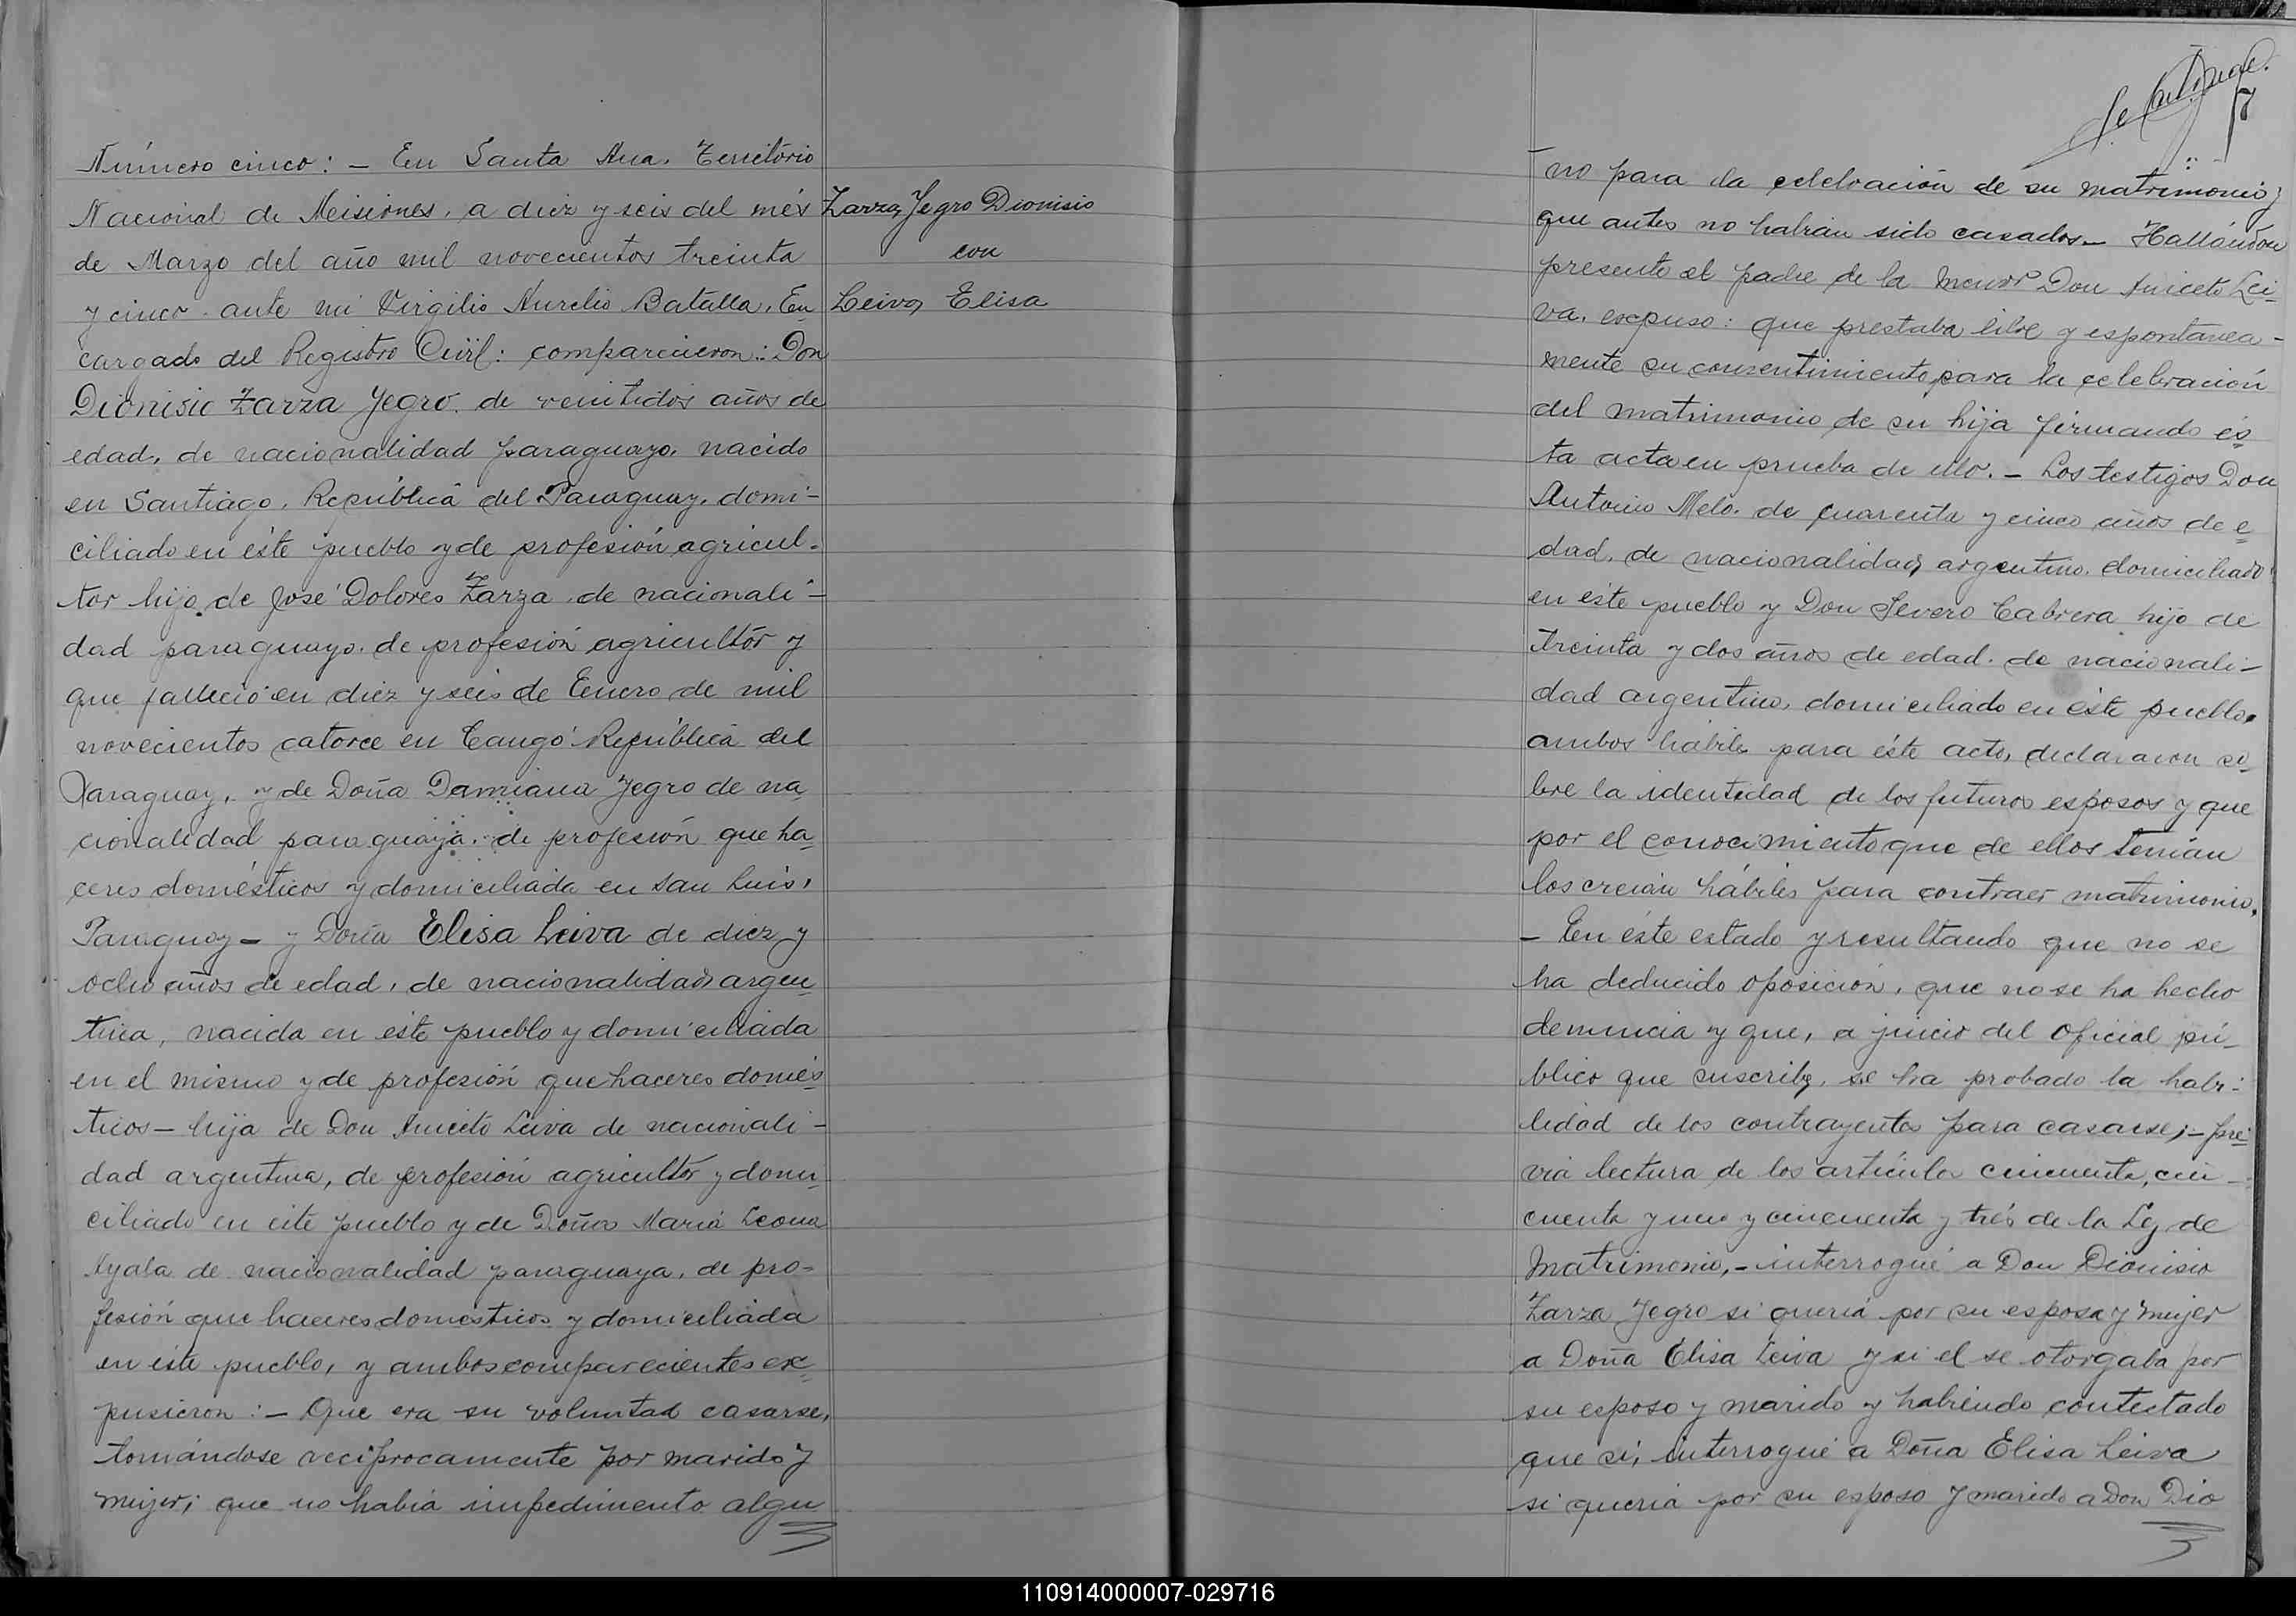 Número cinco: – En Santa Ana, Território
Nacional de Misiónes, a diez y seis del més
de Marzo del año mil novecientos treinta
y cinco ante mi Virgilio Aurelio Batalla, En
cargado del Registro Civil: comparecieron: Don
Dionisio Zarza Yegro, de veintidós años de
edad, de nacionalidad paraguayo, nacido
en Santiago, República del Paraguay, domi-
ciliado en éste pueblo y de profesión agricul-
tor hijo de José Dolores Zarza de nacionali-
dad paraguayo, de profesión agricultór y
que falleció en diez y seis de Enero de mil
novecientos catorce en Cangó República del
Paraguay, y de Doña Damiana Yegro de na
cionalidad paraguaya, de profesión que ha
ceres domésticos y domiciliada en San Luis,
Paraguay – y Doña Elisa Leiva de diez y
ocho años de edad, de nacionalidad argen
tina, nacida en éste pueblo y domiciliada
en el mismo y de profesión que haceres domés
ticos – hija de Don Aniceto Leiva de nacionali-
dad argentina, de profesión agricultór y domi
ciliado en éste pueblo y de Doña María Leona
Ayala de nacionalidad paraguaya, de pro-
fesión que haceres domésticos y domiciliada
en éste pueblo, y ambos comparecientes ex
pusieron: – Que era su voluntad casarse,
tomándose reciprocamente por marido y
mujer; que no había impedimento algu
Zarza Yegro Dionisio
con
Leiva Elisa
7
no para la celebración de su matrimonio y
que antes no habían sido casados. – Hallándose
presente el padre de la menor Don Aniceto Lei-
va, expuso: que prestaba libre y espontanea-
mente su consentimiento para la celebración
del matrimonio de su hija firmando és
ta acta en prueba de ello. – Los testigos Don
Antonio Melo, de cuarenta y cinco años de e
dad, de nacionalidad argentino, domiciliado
en éste pueblo y Don Severo Cabrera hijo de
treinta y dos años de edad, de nacionali-
dad argentino, domiciliado en éste pueblo,
ambos hábiles para éste acto, declararon so
bre la identidad de los futuros esposos y que
por el conocimiento que de ellos tenían
los creían hábiles para contraer matrimonio.
– En éste estado y resultando que no se
ha deducido oposición, que no se ha hecho
denuncia y que, a juicio del Oficial pú-
blico que suscribe, se ha probado la habi-
lidad de los contrayentes para casarse; – pre
via lectura de los artículos cincuenta, cin-
cuenta y uno y cincuenta y trés de la Ley de
Matrimonio, – interrogué a Don Dionisio
Zarza Yegro si quería por su esposa y mujer
a Doña Elisa Leiva y si el se otorgaba por
su esposo y marido y habiendo contestado
que sí, interrogué a Doña Elisa Leiva
si quería por su esposo y marido a Don Dio
110914000007-029716